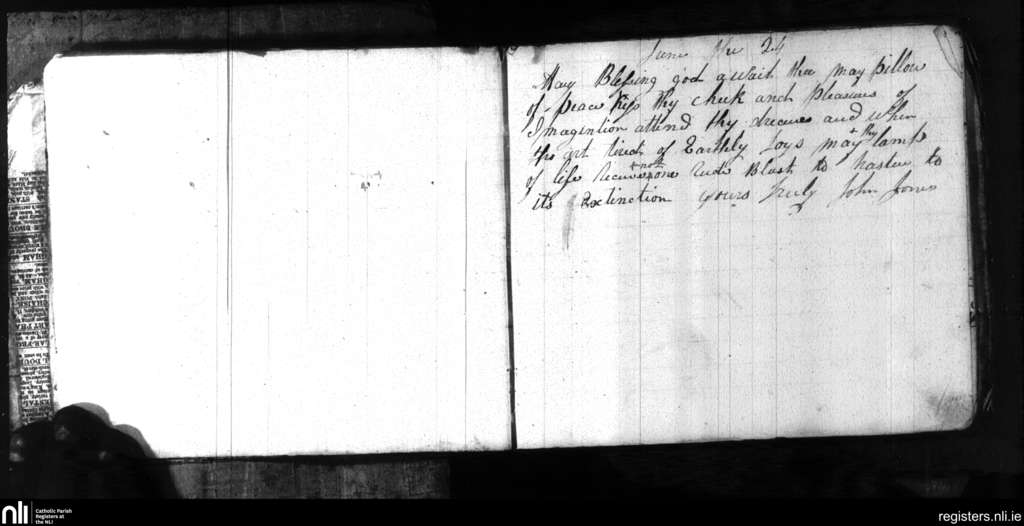 June the 24
May Blessing god await thee may pillow
of peace kiss thy cheek and pleasures of
Imagination attend thy dreams and when
tho art tired of Earthly Joys may + thy lamp
of life + not one rude Blast to hasten to
its Extinction yours truly John Jones
nli
Catholic Parish
Registers at
the NLI
registers.nli.ie